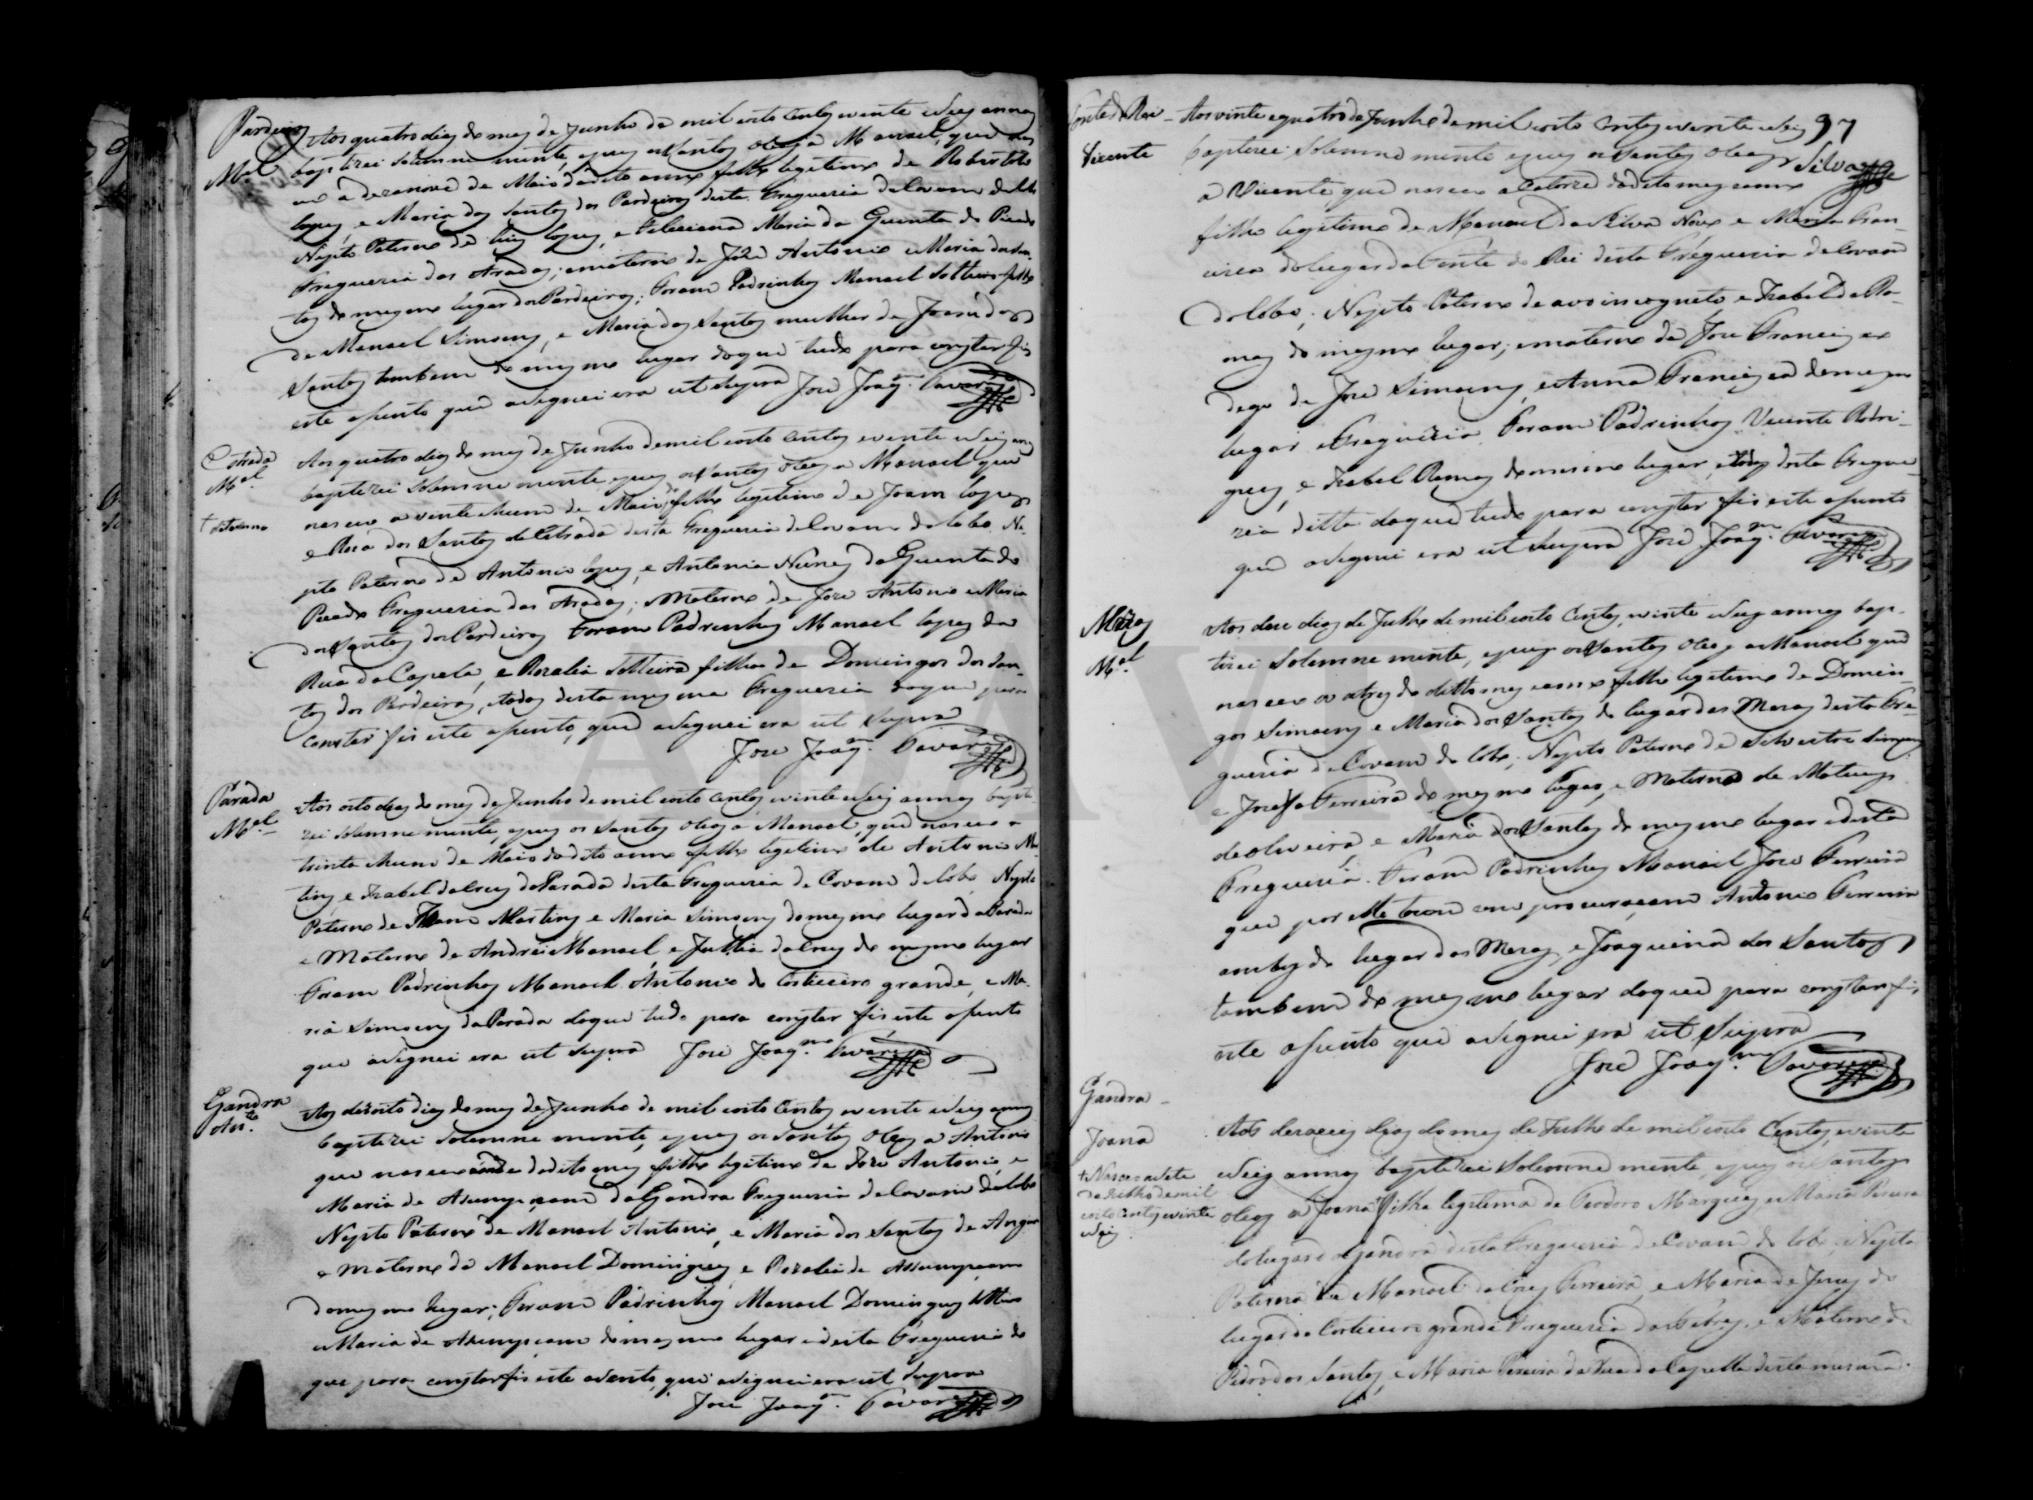 Pardeiros
Mel
Aos quatro dias do mes de Junho de mil oito Centos e vinte e seis annos
baptizei solemne mente, e puz os Santos oleos a Manoel, que nas
ceo a dezanove de Maio do dito anno filho legitimo de
Lopes, e Maria dos Santos dos Pardeiros desta Freguezia de Covam do Lobo
Nepto Paterno de Luis Lopes, e Feleciana Maria da Quinta do Picado
Freguezia das Aradas; e materno de Joze Antonio e Maria dos San-
tos do mesmo lugar dos Pardeiros; Foram Padrinhos Manoel Solteiro filho
de Manoel Simoens, e Maria dos Santos mulher de Joam dos
Santos tambem do mesmo lugar doque tudo para constar fis
este asento que asignei era ut supra Joze Joaqm. Tavares
Estrada
Mel
Aos quatro dias do mes de Junho de mil oito centos e vinte e seis annos
baptizei solemne mente e puz os Santos oleos a Manoel que
nasceo a vinte e hum de Maio, filho legitimo de Joam Lopes
e Roza dos Santos da Estrada desta Freguezia de Covam do Lobo Ne-
pto Paterno de Antonio Lopes, e Antonia Nunes da Quinta do
Picado Freguezia das Aradas; e Materno de Joze Antonio e Maria
dos Santos dos Pardeiros Foram Padrinhos Manoel Lopes da
Rua da Capela, e Rozalia Solteira filha de Domingos dos San-
tos dos Pardeiros, e todos desta mesma Freguezia doque para
constar fis este asento, que asignei era ut supra
Joze Joaqm. Tavares
Parada
Mel
Aos oito dias do mes de Junho de mil oito centos e vinte e seis annos bapti-
zei solemne mente, e puz os Santos oleos a Manoel, que nasceo a
trinta e hum de Maio do dito anno filho legitimo de Antonio Mar
tins e Izabel da Cruz da Parada desta Freguezia de Covam do Lobo, Nepto
Paterno de Martins e Maria Simoens do mesmo lugar da Parada
e Materno de André Manoel, e Jullia da Cruz do mesmo lugar
Foram Padrinhos Manoel Antonio do Corticeiro grande, e Ma-
ria Simoens da Parada doque tudo para constar fis este asento
que asignei era ut supra Joze Joaqm. Tavares
Gandra
Anto.
Aos dezoito dias do mes de Junho de mil oito centos e vinte e seis annos
baptizei solemne mente, e puz os Santos oleos a Antonio
que nasceo a do dito mes filho legitimo de Joze Antonio, e
Maria de Asumpçam da Gandra Freguezia de Covam do Lobo
Nepto Paterno de Manoel Antonio, e Maria dos Santos de
e Materno de Manoel Domingues, e Rozalia de Asumpçam
do mesmo lugar; Foram Padrinhos Manoel Domingues Solteiro
e Maria de Asumpçam do mesmo lugar e desta Freguezia do
que para constar fis este asento, que asignei era ut supra
Joze Joaqm. Tavares
97
Silva
Fonte do Rei
Vicente
Aos vinte e quatro de Junho de mil oito centos e vinte e seis
baptizei solemne mente e puz os Santos oleos
a Vicente, que nasceo a catorze do dito mes e anno
filho legitimo de Manoel da Silva Novo e Maria Fran-
cisca do lugar da Fonte do Rei desta Freguezia de Covam
do Lobo; Nepto Paterno de avo incogneto, e Izabel de Ra-
mos do mesmo lugar; e materno de Joze Francisco
digo de Joze Simoens, e Anna Francisca do mesmo
lugar e Freguezia. Foram Padrinhos Vicente Rodri-
gues, e Izabel Ramos do mesmo lugar, e todos desta Fregue-
zia ditta doque tudo para constar fis este asento
que asignei era ut supra Joze Joaqm. Tavares
Mezas
Mel.
Aos doze dias de Julho de mil oito centos, e vinte e seis annos bap-
tizei solemne mente, e puz os Santos oleos a Manoel que
nasceo a tres do ditto mes e anno filho legitimo de Domin-
gos Simoens e Maria dos Santos do lugar das Mezas desta Fre-
guezia de Covam do Lobo; Nepto Paterno de Silvestre Simoens
e Josefa Ferreira do mesmo lugar, e Materno de Mateus
de Oliveira e Maria dos Santos do mesmo lugar e desta
Freguezia. Foram Padrinhos Manoel Joze Ferreira
que por elle tocou com procuraçam Antonio Ferreira
ambos do lugar das Mezas, e Joaquina dos Santos
tambem do mesmo lugar doque para constar fis
este asento que asignei era ut supra
Joze Joaqm. Tavares
Gandra
Joana
+ Nasceo a sete
de Julho de mil
oito centos e vinte
e seis
Aos dezaceis dias do mes de Julho de mil oito centos, e vinte
e seis annos baptizei solemne mente, e puz os Santos
oleos a Joana filha legitima de Teodoro Marques, e Maria Pereira
do lugar da Gandra desta Freguezia de Covam do Lobo; Nepta
Paterna de Manoel da Cruz Ferreira, e Maria de Jesus do
lugar do Corticeiro grande Freguezia das Febres, e Materna de
Pedro dos Santos, e Maria Pereira da Rua da Capella desta mesma